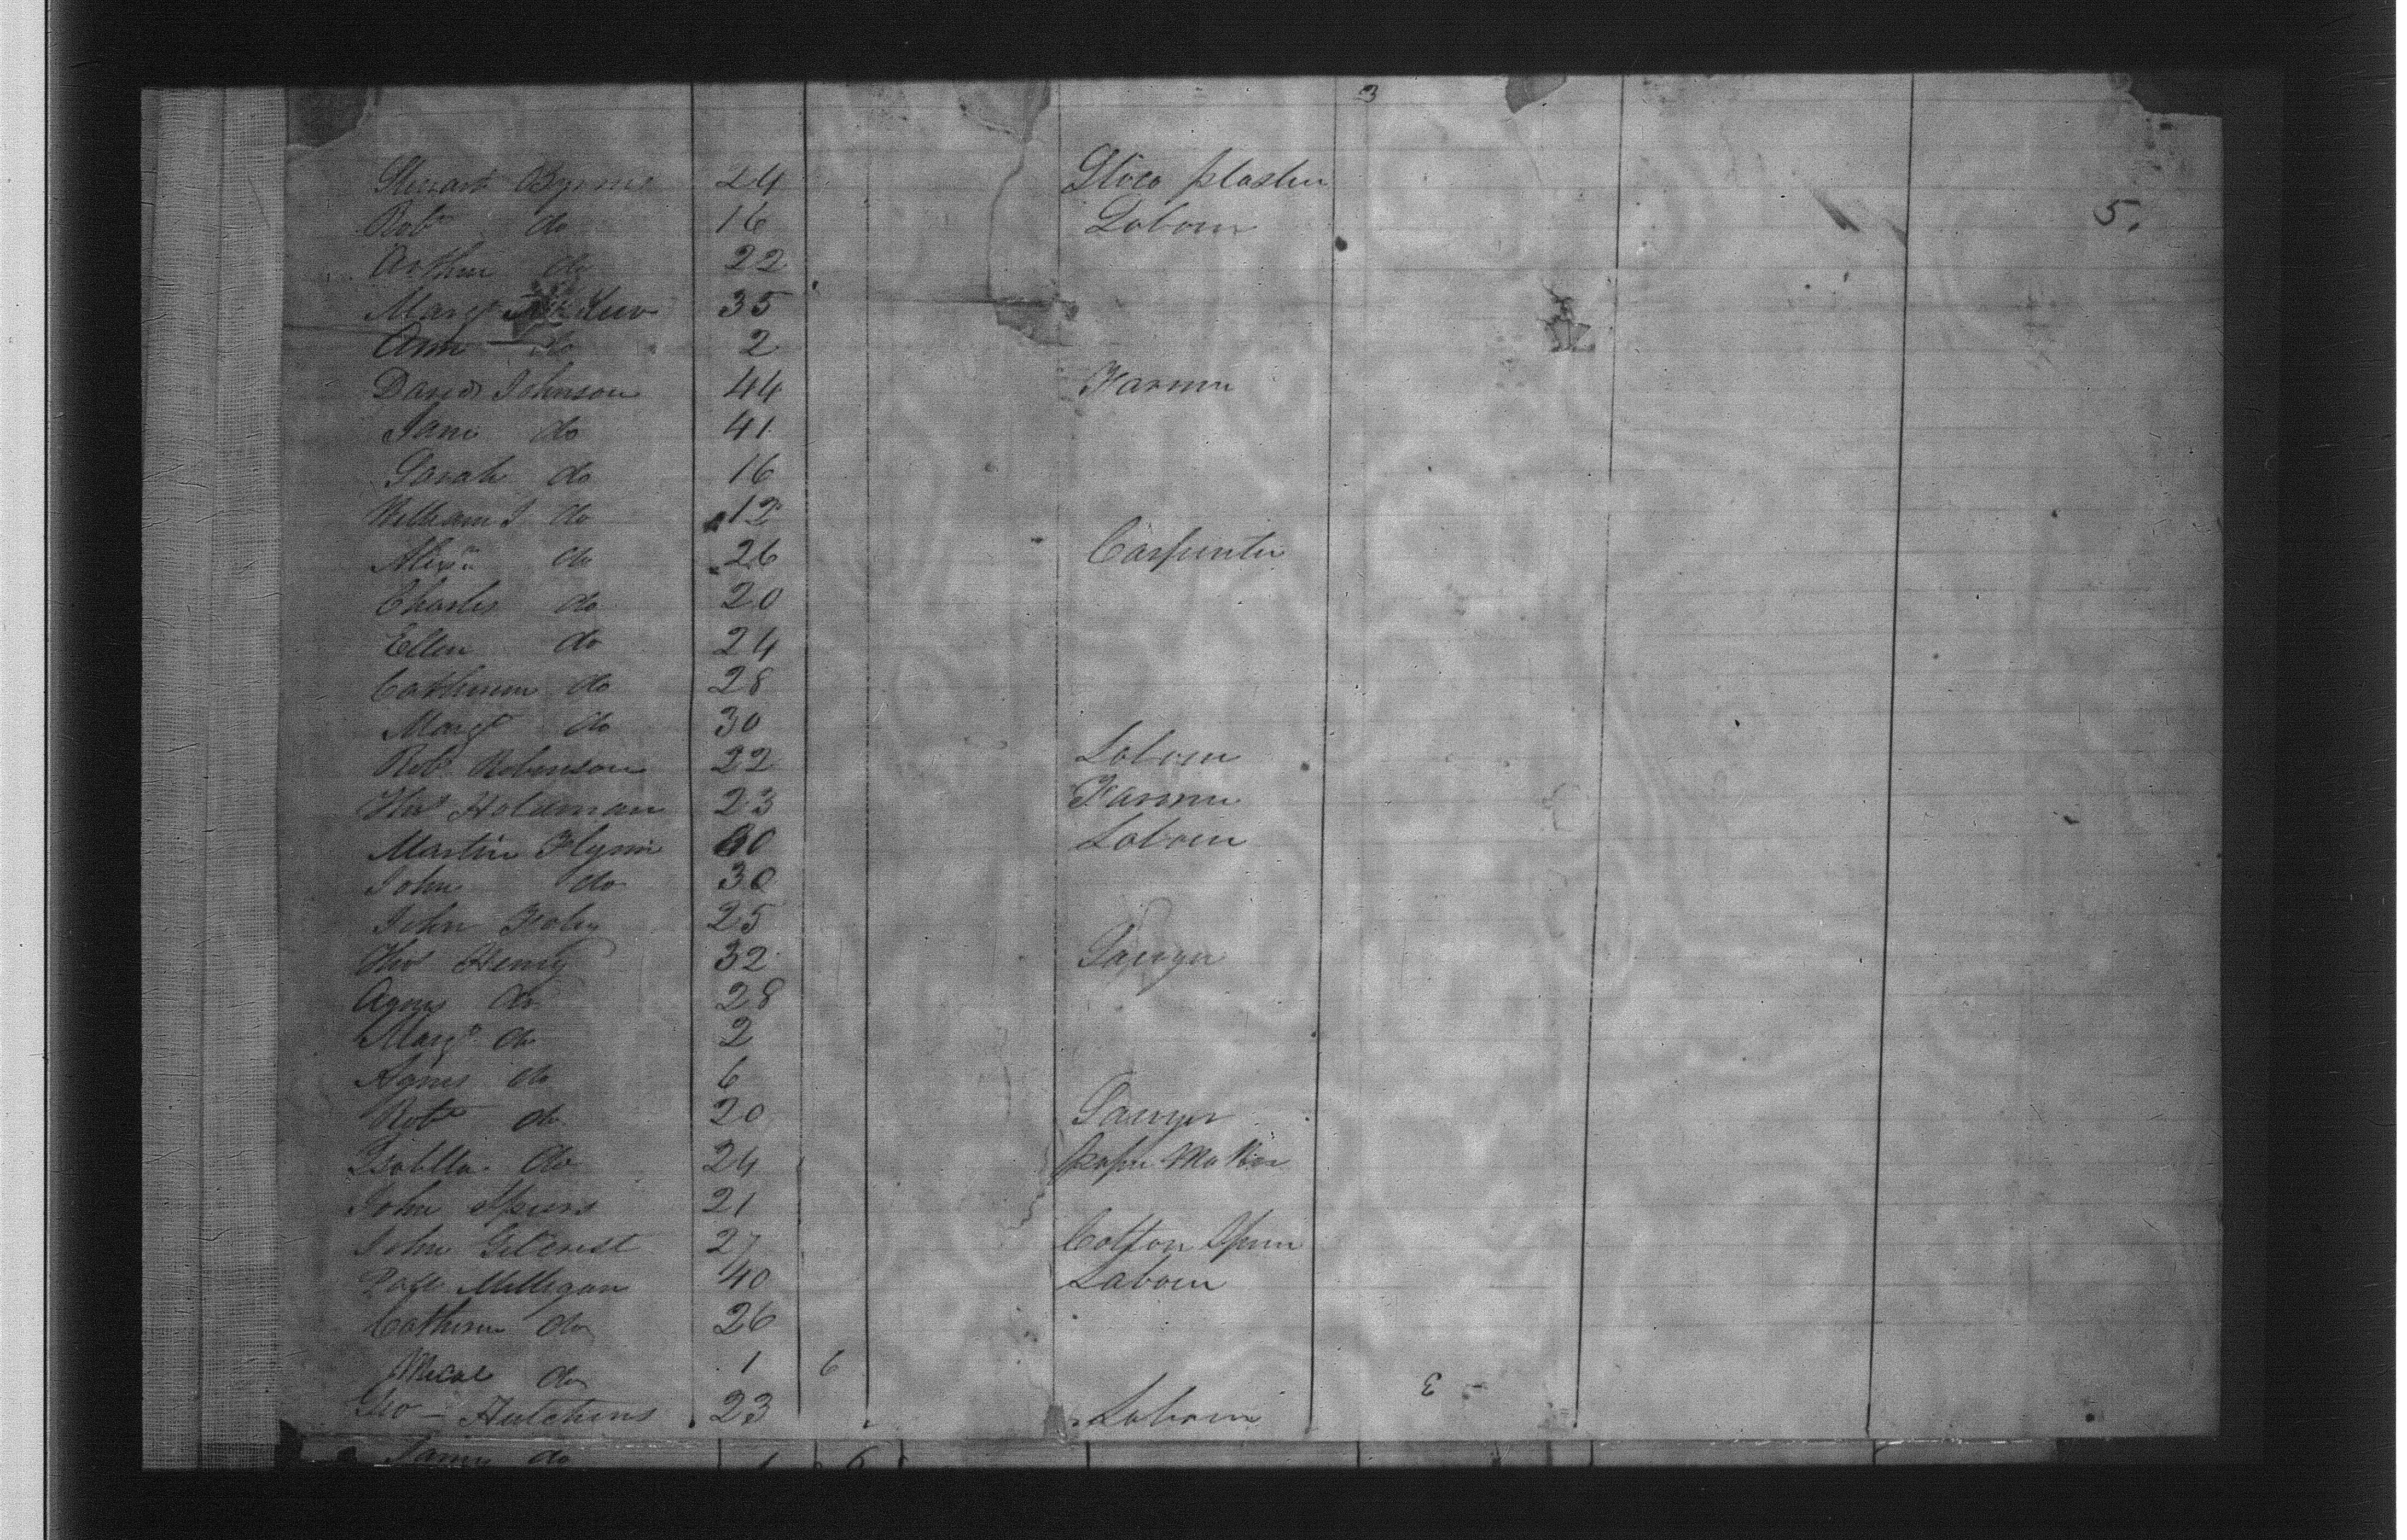 3
Stewart Byrne 24 Stoco plaster
5.
Robt do 16 Labour
Arthur do 22
Margt 35
Ann do 2
David Johnson 44 Farmer
Jane do 41
Sarah do 16
William J do 12
Alexr do 26 Carpenter
Charles do 20
Ellen do 24
Catherine do 28
Margt do 30
Robt Robinson 22 Labour
Thos Holdman 23 Farmer
Martin Flynn Labour
John do 30
John Foley 25
Thos Henry 32 Sawyer
Agnes do 28
Margt do 2
Agnes do 6
Robt do 20 Sawyer
Isabella do 24 paper Maker
John Spiers 21
John Gilcrest 27 Cotton Spinn
Milligan 40 Labour
Catherine do 26
Mical do 1 6
3 -
Geo - Hutchens 23 Labour
James do 1 6